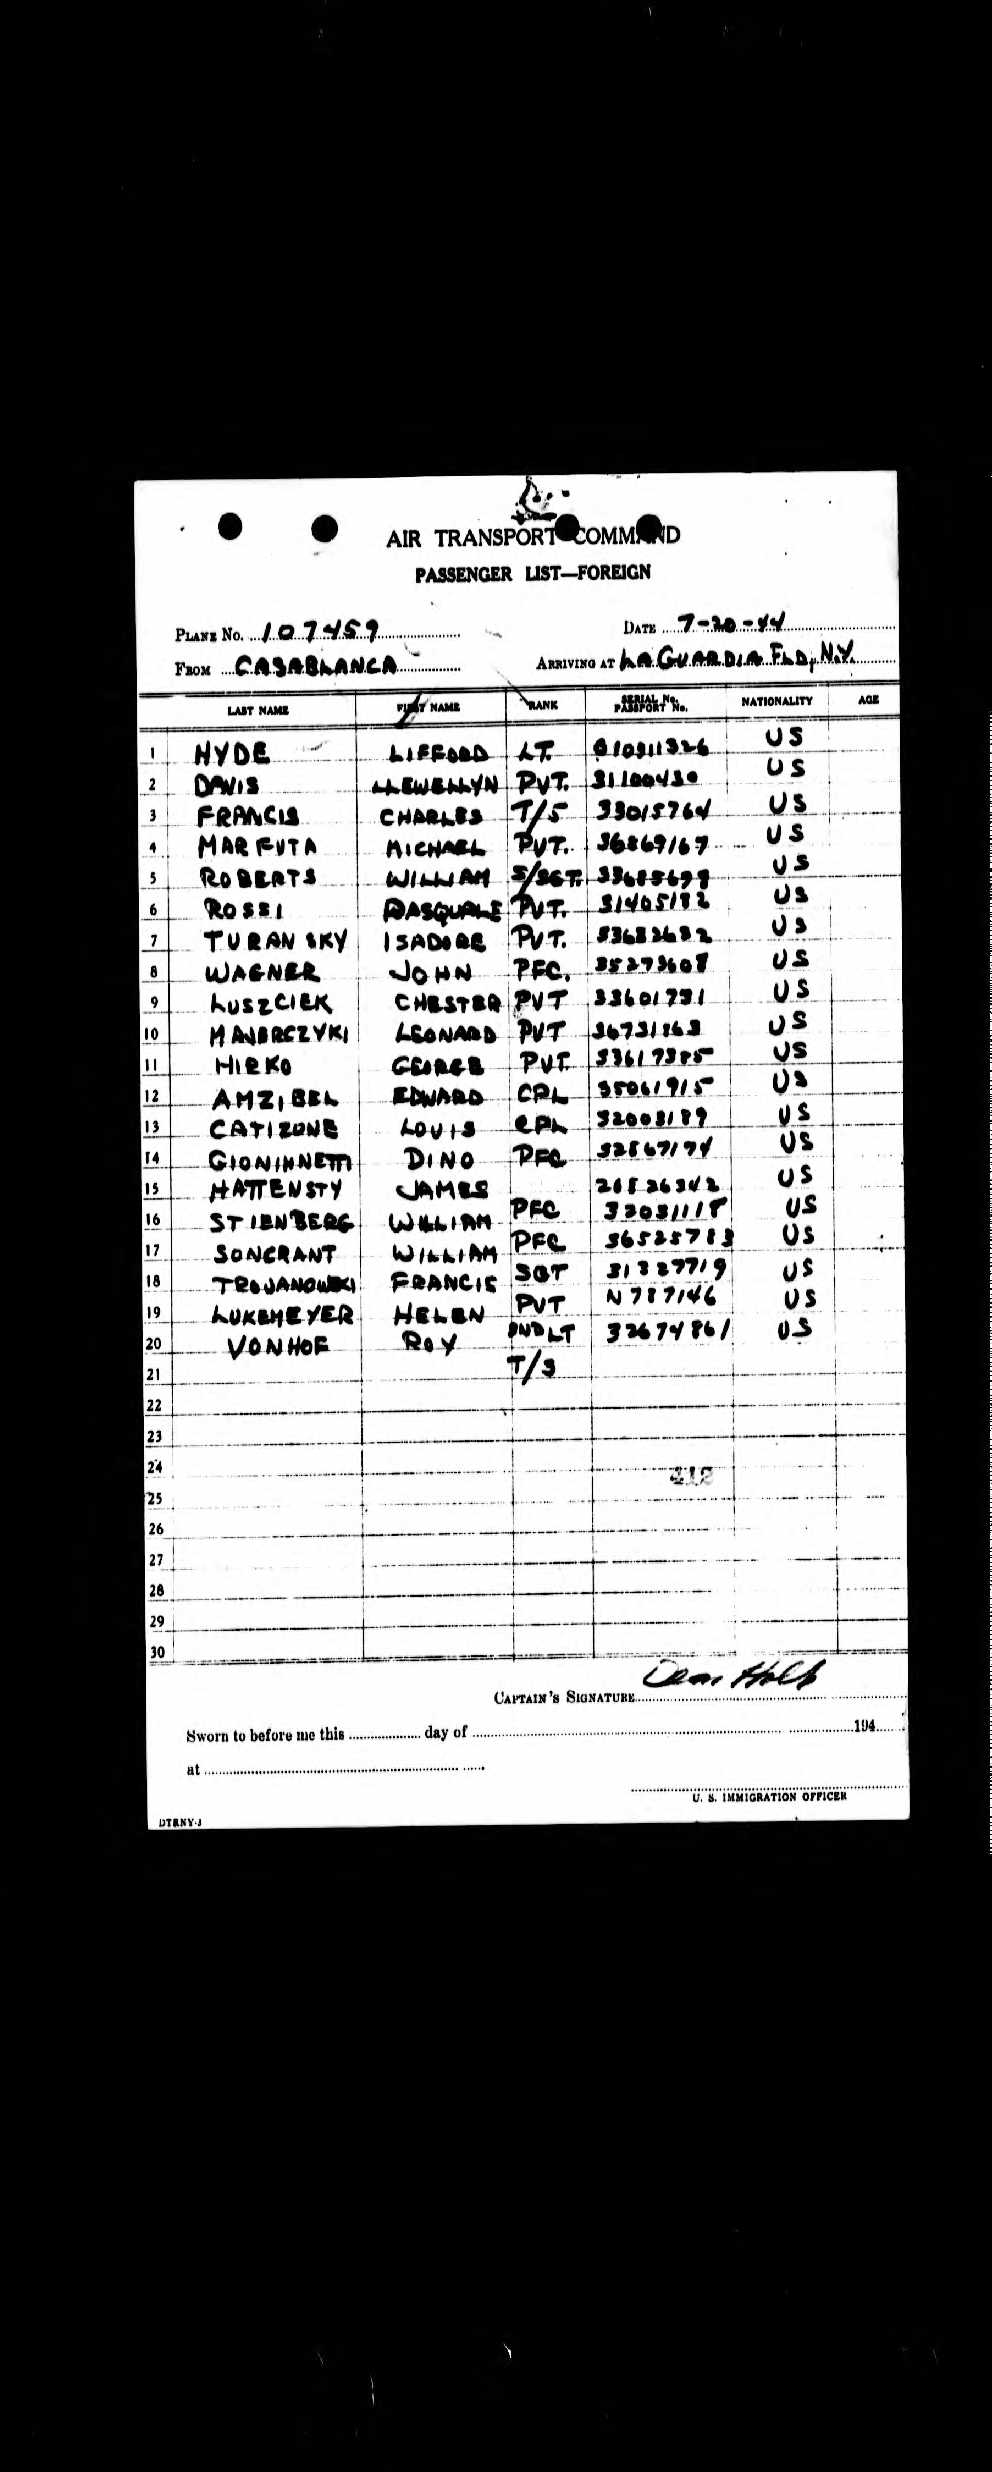 AIR TRANSPORT COMMAND
PASSENGER LIST—FOREIGN
PLANE No. 107459 DATE 7-20-44
FROM CASABLANCA ARRIVING AT LAGUARDIA FLD, N.Y.
LAST NAME FIRST NAME RANK SERIAL No. PASSPORT No. NATIONALITY AGE
1 HYDE LIFFORD LT. US
2 DAVIS LLEWELLYN PVT. 31100430 US
3 FRANCIS CHARLES T/5 33015764 US
4 MARFUTA MICHAEL PVT. 36869167 US
5 ROBERTS WILLIAM S/SGT. US
6 ROSSI PASQUALE PVT. 31405182 US
7 TURANSKY ISADORE PVT. US
8 WAGNER JOHN PFC. 35273608 US
9 LUSZCIEK CHESTER PVT US
10 LEONARD PVT US
11 HIRKO GEORGE PVT. 33617385 US
12 AMZIBEL EDWARD CPL 35061915 US
13 CATIZONE LOUIS CPL US
14 DINO PFC 32867174 US
15 HATTENSTY JAMES US
16 STIENBERG WILLIAM PFC US
17 SONCRANT WILLIAM PFC US
18 TROJANOWSKI FRANCIS SGT 31327719 US
19 LUKEMEYER HELEN PVT N787146 US
20 VONHOF ROY 2ND LT 32674861 US
21 T/3
22
23
24
25
26
27
28
29
30
CAPTAIN'S SIGNATURE
Sworn to before me this day of 194
at
U. S. IMMIGRATION OFFICER
DTRNY-J